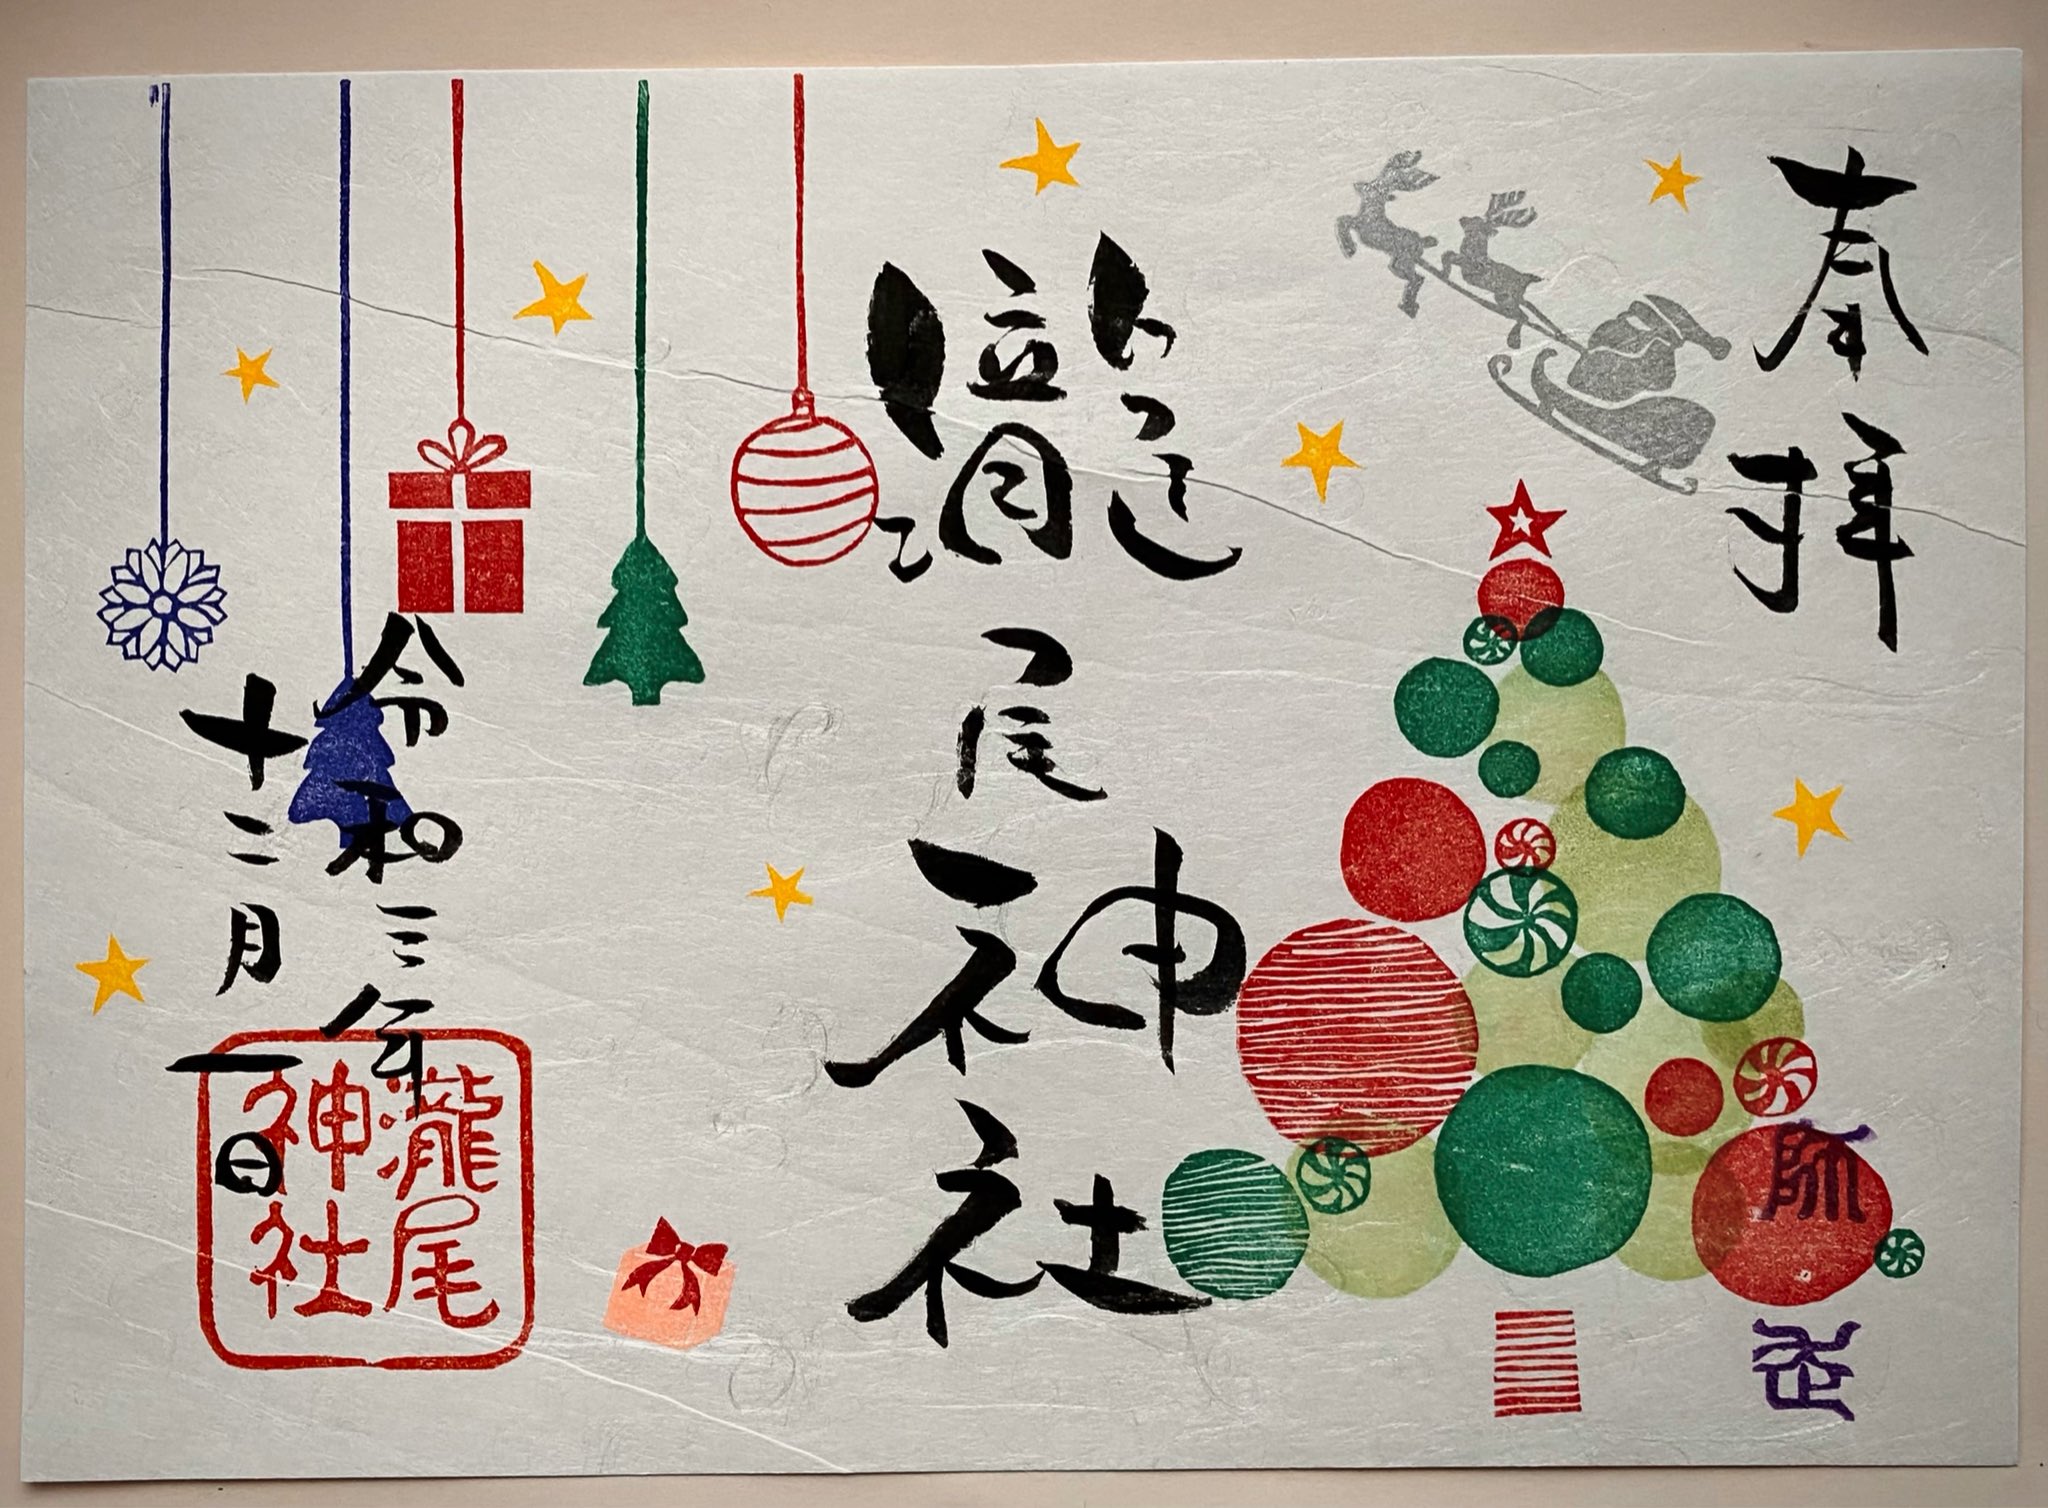 奉拝
師走
瀧尾神社
令和三年
十二月一日
瀧尾
神社